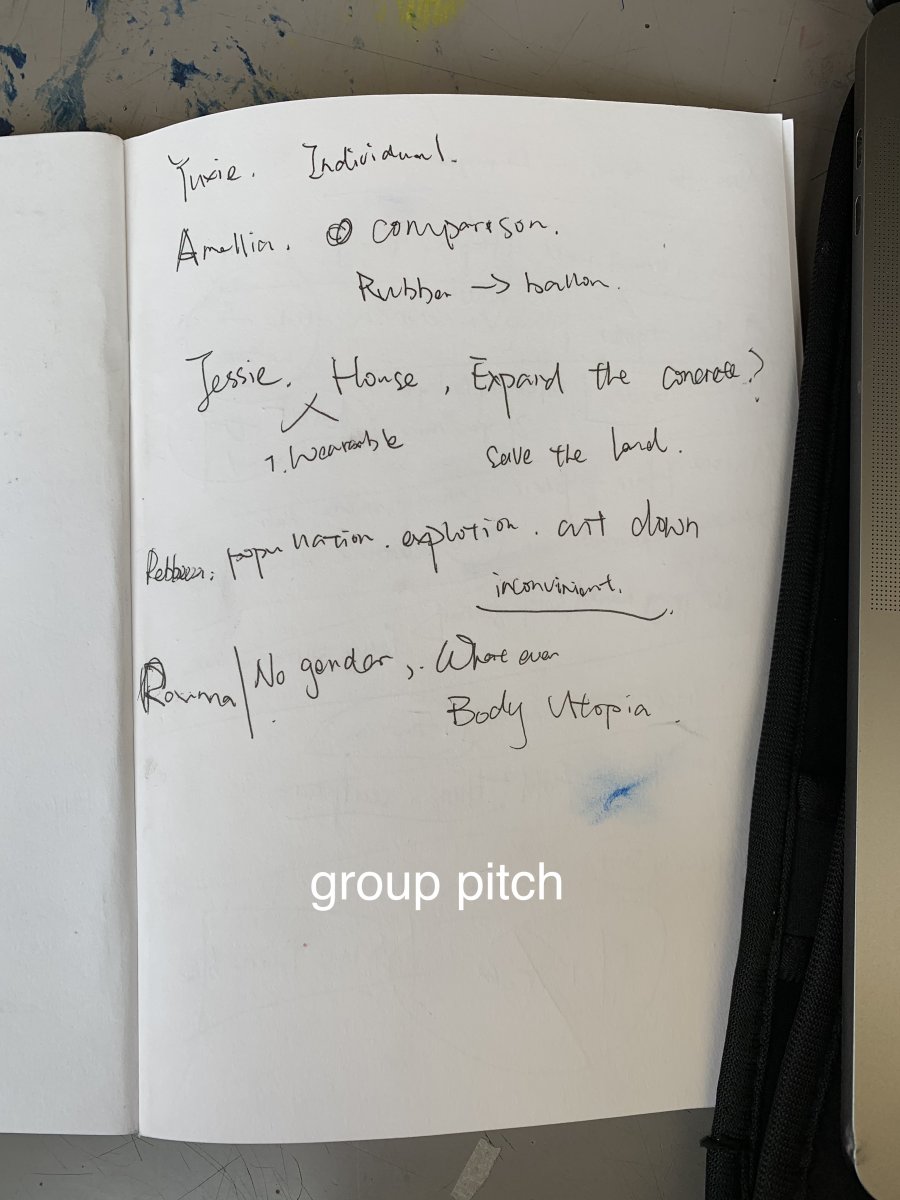 Yuxie. Individual.
Amellia. comparison.
Rubber → ballon.
Jessie. House, Expand the concrete?
1. Wearable
Save the land.
popunation. explotion. cut down
inconvinient.
No gender, Where ever
Body Utopia.
group pitch